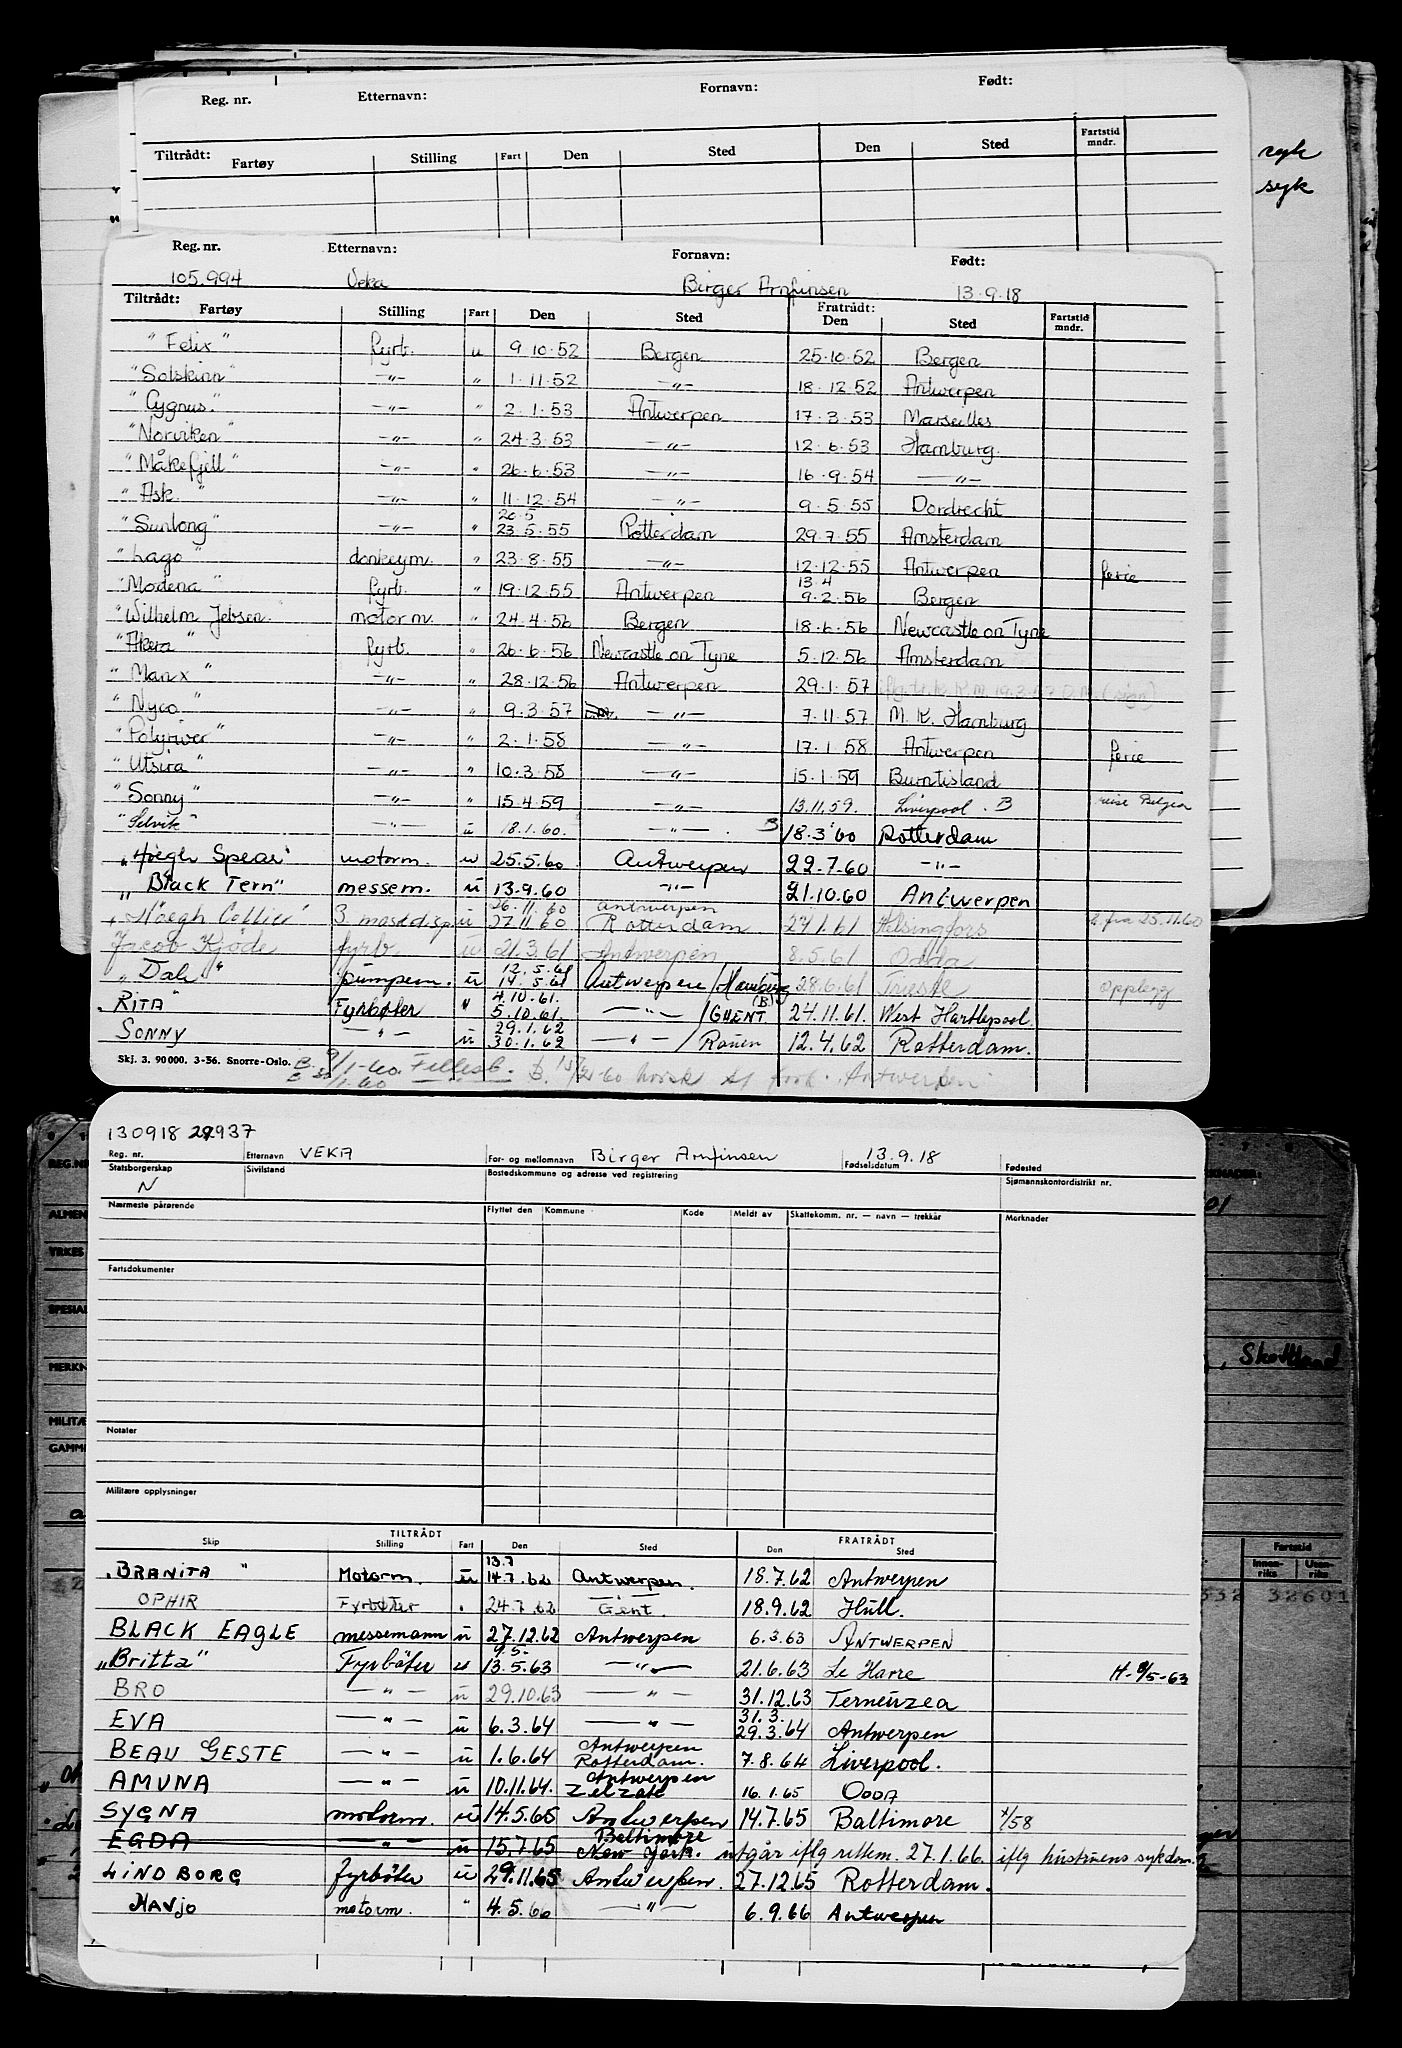 Reg. nr. Etternavn: Fornavn: Født:
Tiltrådt: Fartøy Stilling Fart Den Sted Den Sted Fartstid mndr.
syk
syk
Reg. nr. Etternavn: Fornavn: Født:
105.994 Veka Birger Arnfinsen 13.9.18
Tiltrådt: Fratrådt:
Fartøy Stilling Fart Den Sted Den Sted Fartstid mndr.
"Felix" fyrb. u 9.10.52 Bergen 25.10.52 Bergen
"Solskinn" —"— " 1.11.52 —"— 18.12.52 Antwerpen
"Cygnus." —"— " 2.1.53 Antwerpen 17.3.53 Marseilles
"Norviken" —"— " 24.3.53 —"— 12.6.53 Hamburg.
"Måkefjell" —"— " 26.6.53 —"— 16.9.54 —"—
"Ask" —"— " 11.12.54 —"— 9.5.55 Dordrecht
20.5
"Sunlong" —"— " 23.5.55 Rotterdam 29.7.55 Amsterdam
"Lago" donkeym. " 23.8.55 —"— 12.12.55 Antwerpen ferie
13.4
"Modena" fyrb. " 19.12.55 Antwerpen 9.2.56 Bergen
"Wilhelm Jebsen" motorm. " 24.4.56 Bergen 18.6.56 Newcastle on Tyne
"Akera" fyrb. " 26.6.56 Newcastle on Tyne 5.12.56 Amsterdam
"Manx" —"— " 28.12.56 Antwerpen 29.1.57
"Nyco" —"— " 9.3.57 —"— 7.11.57 M.K. Hamburg
"Polyriver" —"— " 2.1.58 —"— 17.1.58 Antwerpen ferie
"Utsira" —"— " 10.3.58 —"— 15.1.59 Burntisland
"Sonny" —"— " 15.4.59 —"— 13.11.59. Liverpool. B reise Belgia
"Selvik" —"— u 18.1.60. —"—. B 18.3.60 Rotterdam
"Høegh Spear" motorm. u 25.5.60 Antwerpen 22.7.60 —"—
"Black Tern" messem. u 13.9.60 —"— 21.10.60 Antwerpen
26.11.60 Antwerpen
"Høegh Collier" 3. mask.disp. u 27.11.60 Rotterdam 27.1.61 Helsingfors fra 25.11.60
Jacob Kjøde fyrb. u 21.3.61 Antwerpen 8.5.61 Odda
12.5.61
"Dale" pumpem. u 14.5.61 Antwerpen/Hamburg 28.6.61 Trieste opplegg
4.10.61. (B)
"RITA" Fyrbøter " 5.10.61. —"— /GHENT 24.11.61. West Hartlepool.
29.1.62
SONNY —"— u 30.1.62 —"— /Rouen 12.4.62 Rotterdam.
Skj. 3. 90000. 3-56. Snorre-Oslo.
130918 29937
Reg. nr. Etternavn VEKA For- og mellomnavn Birger Arnfinsen 13.9.18 Fødselsdatum Fødested
Statsborgerskap Sivilstand Bostedskommune og adresse ved registrering Sjømannskontordistrikt nr.
N
Nærmeste pårørende Flyttet den Kommune Kode Meldt av Skattekomm. nr. — navn — trekkår Merknader
Fartsdokumenter
, Skottland
Notater
Militære opplysninger
TILTRÅDT FRATRÅDT
Skip Stilling Fart Den Sted Den Sted
Fartstid
Innenriks Utenriks
32601
13.7
"BRANITA" Motorm. u 14.7.62 Antwerpen. 18.7.62 Antwerpen
OPHIR Fyrbøter " 24.7.62 Gent. 18.9.62 Hull.
BLACK EAGLE messemann u 27.12.62 Antwerpen 6.3.63 ANTWERPEN
9.5-
"Britta" Fyrbøter u 13.5.63 —"— 21.6.63 Le Havre H-9/5-63
BRO —"— u 29.10.63 —"— 31.12.63 Terneuzea
31.3.
EVA —"— u 6.3.64 —"— 29.3.64 Antwerpen
Antwerpen
BEAU GESTE —"— u 1.6.64 Rotterdam. 7.8.64 Liverpool.
Antwerpen
AMUNA —"— u 10.11.64. Zelzate 16.1.65 ODDA
SYGNA motorm. u 14.5.65 Antwerpen 14.7.65 Baltimore 4/58
Baltimore
EGDA —"— u 15.7.65 New York. utgår iflg rettem. 27.1.66. iflg hustruens sykdom.
LINDBORG fyrbøter u 29.11.65 Antwerpen. 27.12.65 Rotterdam.
NAVJO motorm. " 4.5.66 —"— 6.9.66 Antwerpen